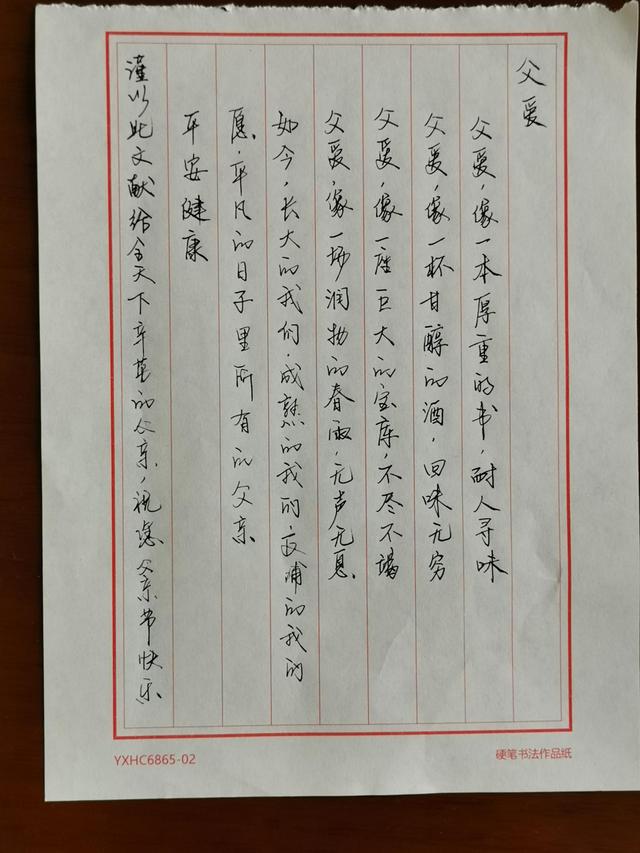 父爱
父爱，像一本厚重的书，耐人寻味
父爱，像一杯甘醇的酒，回味无穷
父爱，像一座巨大的宝库，不尽不竭
父爱，像一场润物的春雨，无声无息
如今，长大的我们，成熟的我们，反哺的我们
愿，平凡的日子里所有的父亲
平安健康
谨以此文献给全天下辛苦的父亲，祝您父亲节快乐
YXHC6865-02
硬笔书法作品纸